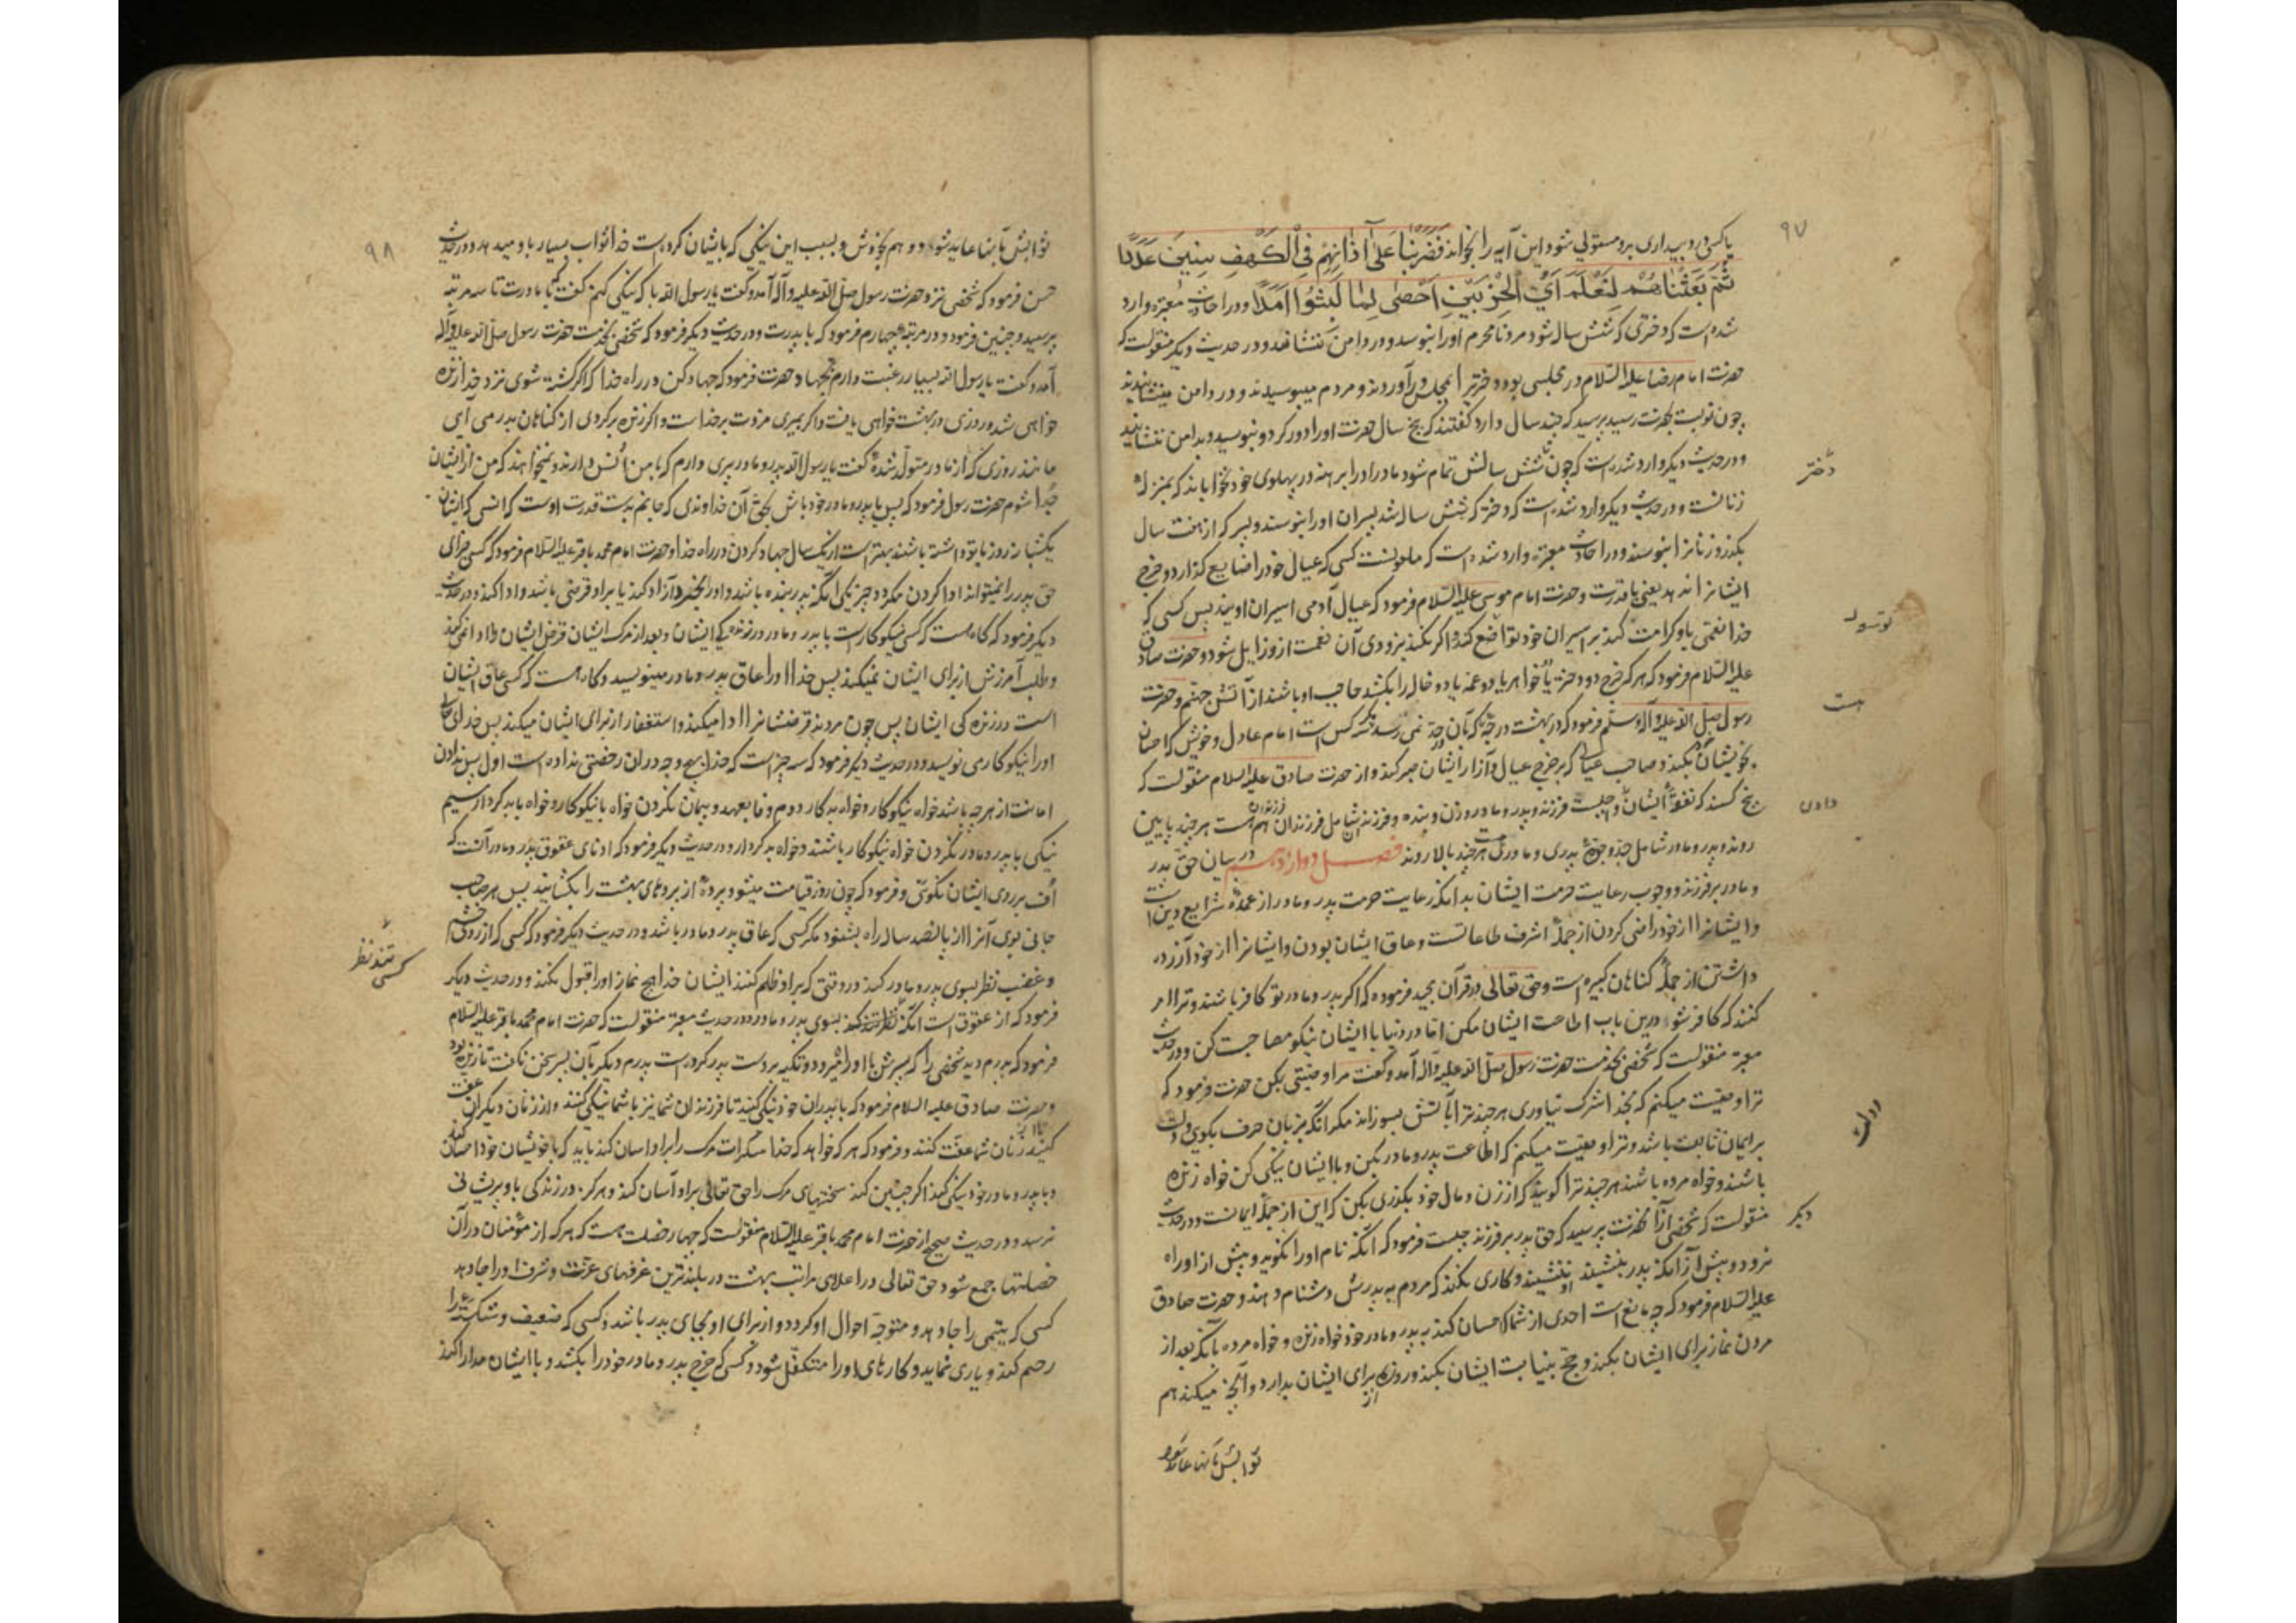 ۹۷
یا کسی درد بیداری برو مستولی شود این آیه را بخواند فَضَرَبْنَا عَلَىٰ آذَانِهِمْ فِي الْكَهْفِ سِنِينَ عَدَدًا
ثُمَّ بَعَثْنَاهُمْ لِنَعْلَمَ أَيُّ الْحِزْبَيْنِ أَحْصَىٰ لِمَا لَبِثُوا أَمَدًا و در احادیث معتبره وارد
شده است که دختری که شش ساله شود مرد نامحرم او را نبوسد و در دامن ننشاند و در حدیث دیگر منقولست که
حضرت امام رضا علیه السلام در مجلسی بود دختری را بمجلس درآوردند و مردم میبوسیدند و در دامن مینشانیدند
چون نوبت بحضرت رسید پرسید که چند سال دارد گفتند که پنج سال حضرت او را دور کرد و نبوسید و بدامن ننشانید
و در حدیث دیگر وارد شده است که چون شش سالش تمام شود مادر او را برهنه در پهلوی خود نخواباند که بمنزله
دختر
زنانست و در حدیث دیگر وارد شده است که دختر که شش ساله شد پسران او را نبوسند و پسر که از هفت سال
بگذرد زنانرا نبوسند و در احادیث معتبره وارد شده است که ملعونست کسی که عیال خود را ضایع گذارد و خرج
ایشانرا ندهد یعنی با قدرت و حضرت امام موسی علیه السلام فرمود که عیال آدمی اسیران اویند پس کسی که
خدا نعمتی باو کرامت کند بر اسیران خود تواضع کند و اگر نکند بزودی آن نعمت ازو زایل شود و حضرت صادق
علیه السلام فرمود که هر که خرج دو دختر یا دو خواهر یا دو عمه یا دو خاله را بکشد حاجب او باشند از آتش جهنم و حضرت
رسول صلی الله علیه و آله و سلم فرمود که در بهشت درجه که بآن درجه نمی رسد مگر سه کس امام عادل و خویشی که احسان
هست
بخویشان بکند و صاحب عیالی که بر خرج عیال و آزار ایشان صبر کند و از حضرت صادق علیه السلام منقولست که
پنج کسند که نفقه ایشان واجبست فرزند و پدر و مادر و زن و بنده و فرزند شامل فرزندان فرزندان هم هست هر چند پایین
دادن
روند و پدر و مادر شامل جد و جده پدری و مادری هست هر چند بالا روند فصل دوازدهم در بیان حق پدر
و مادر بر فرزند و وجوب رعایت حرمت ایشان بدانکه رعایت حرمت پدر و مادر از عمده شرایع دین است
و ایشانرا از خود راضی کردن از جمله اشرف طاعاتست و عاق ایشان بودن و ایشانرا از خود آزرده
داشتن از جمله گناهان کبیره است و حق تعالی در قرآن مجید فرموده که اگر پدر و مادر تو کافر باشند و ترا امر
کنند که کافر شو درین باب اطاعت ایشان مکن اما در دنیا با ایشان نیکو مصاحبت کن و در حدیث
معتبر منقولست که شخصی بخدمت حضرت رسول صلی الله علیه و آله آمد و گفت مرا وصیتی بکن حضرت فرمود که
ترا وصیت میکنم که بخدا شرک نیاوری هر چند ترا بآتش بسوزانند مگر آنکه بزبان حرف بگویی و دلت
بر ایمان ثابت باشد و ترا وصیت میکنم که اطاعت پدر و مادر بکن و با ایشان نیکی کن خواه زنده
باشند و خواه مرده باشند هر چند ترا گویند که از زن و مال خود بگذری بکن که این از جمله ایمانست و در حدیث
دیگر
منقولست که شخصی از آنحضرت پرسید که حق پدر بر فرزند چیست فرمود که آنکه نام او را نگوید و پیش از او راه
نرود و پیش از آنکه پدر بنشیند او ننشیند و کاری نکند که مردم به پدرش دشنام دهند و حضرت صادق
علیه السلام فرمود که چه مانع است احدی از شما که احسان کند به پدر و مادر خود خواه زنده و خواه مرده بآنکه بعد از
مردن نماز برای ایشان بکند و حج بنیابت ایشان بکند و روزه برای ایشان بدارد و آنچه میکند هم
ثوابش بآنها عاید شود
۹۸
ثوابش بآنها عاید شود و هم بخودش و بسبب این نیکی که بایشان کرده است خدا ثواب بسیار باو میدهد و در حدیث
حسن فرمود که شخصی نزد حضرت رسول صلی الله علیه و آله آمد و گفت یا رسول الله با که نیکی کنم گفت با مادرت تا سه مرتبه
پرسید و چنین فرمود و در مرتبه چهارم فرمود که با پدرت و در حدیث دیگر فرمود که شخصی بخدمت حضرت رسول صلی الله علیه و آله
آمد و گفت یا رسول الله بسیار رغبت دارم بجهاد حضرت فرمود که جهاد کن در راه خدا که اگر کشته شوی نزد خدا زنده
خواهی شد و روزی در بهشت خواهی یافت و اگر بمیری مزدت بر خداست و اگر زنده برگردی از گناهان بدر می آیی
مانند روزی که از مادر متولد شده گفت یا رسول الله پدر و مادر پیری دارم که با من انس دارند و نمیخواهند که من از ایشان
جدا شوم حضرت رسول فرمود که پس با پدر و مادر خود باش بحق آن خداوندی که جانم بدست قدرت اوست که انسی که ایشان
یکشبانه روز با تو داشته باشند بهتر است از یکسال جهاد کردن در راه خدا و حضرت امام محمد باقر علیه السلام فرمود که کسی جزای
حق پدر را نمیتواند ادا کردن مگر دو چیز یکی آنکه پدر بنده باشد و او را بخرد و آزاد کند یا بر او قرضی باشد و ادا کند و در حدیث
دیگر فرمود که گاه هست که کسی نیکوکارست با پدر و مادر در زندگی ایشان و بعد از مرگ ایشان قرض ایشان را ادا نمی کند
و طلب آمرزش از برای ایشان نمیکند پس خدا او را عاق پدر و مادر مینویسد و گاه هست که کسی عاق ایشان
است در زندگی ایشان پس چون مردند قرضشانرا ادا میکند و استغفار از برای ایشان میکند پس خدای تعالی
او را نیکوکار می نویسد و در حدیث دیگر فرمود که سه چیز است که خدا هیچ وجه در آن رخصتی نداده است اول پس ندادن
امانت از هر چه باشد خواه نیکوکار و خواه بد کار دوم وفا بعهد و پیمان نکردن خواه با نیکوکار و خواه با بد کردار سیم
نیکی با پدر و مادر نکردن خواه نیکوکار باشند و خواه بد کردار و در حدیث دیگر فرمود که ادنای عقوق پدر و مادر آنست که
اف بر روی ایشان بگویی و فرمود که چون روز قیامت میشود پرده از پردهای بهشت را بگشایند پس هر صاحب
جانی بوی آنرا از پانصد ساله راه بشنود مگر کسی که عاق پدر و مادر باشد و در حدیث دیگر فرمود که کسی که از روی خشم
و غضب نظر بسوی پدر و مادر کند در وقتی که بر او ظلم کنند ایشان خدا هیچ نماز او را قبول نکند و در حدیث دیگر
کسی تند نظر
فرمود که از عقوق است آنکه نظر تند کند بسوی پدر و مادر و در حدیث معتبر منقولست که حضرت امام محمد باقر علیه السلام
فرمود که پدرم دید شخصی را که پسرش با او راه میرود و تکیه بر دست پدر کرده است پدرم دیگر بآن پسر سخن نگفت تا زنده بود
و حضرت صادق علیه السلام فرمود که با پدران خود نیکی کنید تا فرزندان شما نیز با شما نیکی کنند و از زنان دیگران عفت
کنید تا از زنان شما عفت کنند و فرمود که هر که خواهد که خدا سکرات مرگ را بر او آسان کند باید که با خویشان خود احسان کند
و با پدر و مادر خود نیکی کند اگر چنین کند سختیهای مرگ را حق تعالی بر او آسان کند و هرگز در زندگی باو پریشانی
نرسد و در حدیث صحیح از حضرت امام محمد باقر علیه السلام منقولست که چهار خصلت هست که هر که از مؤمنان در آن
خصلتها جمع شود حق تعالی در اعلای مراتب بهشت در بلندترین غرفهای عزت و شرف او را جا دهد
کسی که یتیمی را جا دهد و متوجه احوال او گردد و از برای او بجای پدر باشد و کسی که ضعیف و شکسته را
رحم کند و یاری نماید و کارهای او را متکفل شود و کسی که خرج پدر و مادر خود را بکشد و با ایشان مدارا کند